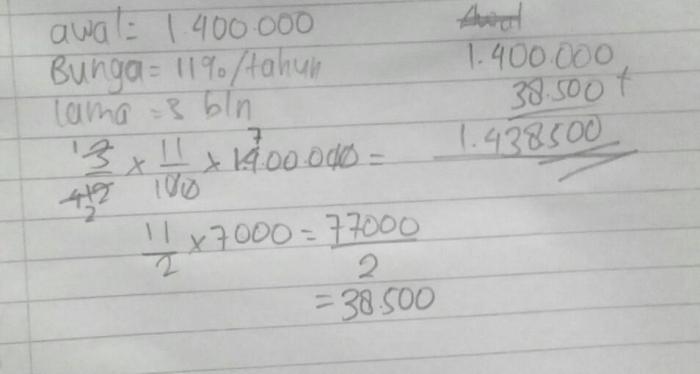 awal = 1.400.000
Bunga = 11%/tahun
lama = 3 bln
3/12 × 11/100 × 1.400.000 =
11/2 × 7000 = 77000/2
= 38.500
1.400.000
38.500 +
1.438.500